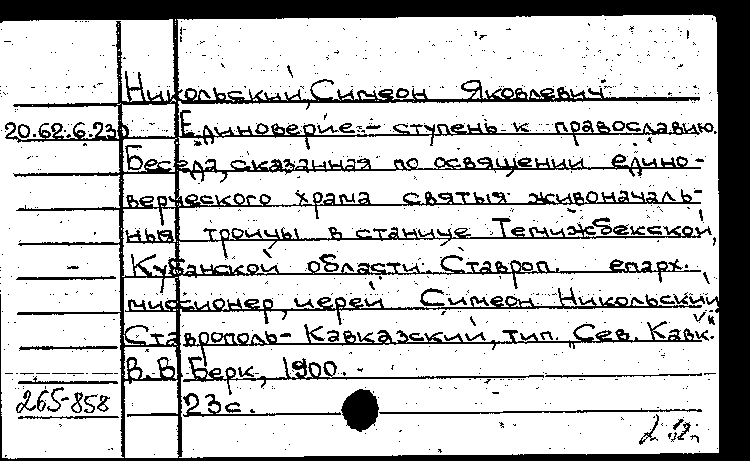 Никольский, Симеон Яковлевич
20.62.6.230 Единоверие - ступень к православию.
Беседа, сказанная по освящении едино-
верческого храма святыя живоначаль-
ныя троицы в станице Темижбекской,
Кубанской области. Ставроп. епарх.
миссионер, иерей Симеон Никольский
Ставрополь-Кавказский, тип. „Сев. Кавк."
В. В. Берк, 1900.
265-858 23с.